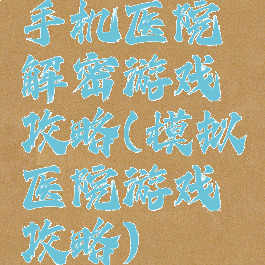 手机医院
解密游戏
攻略(模拟
医院游戏
攻略)